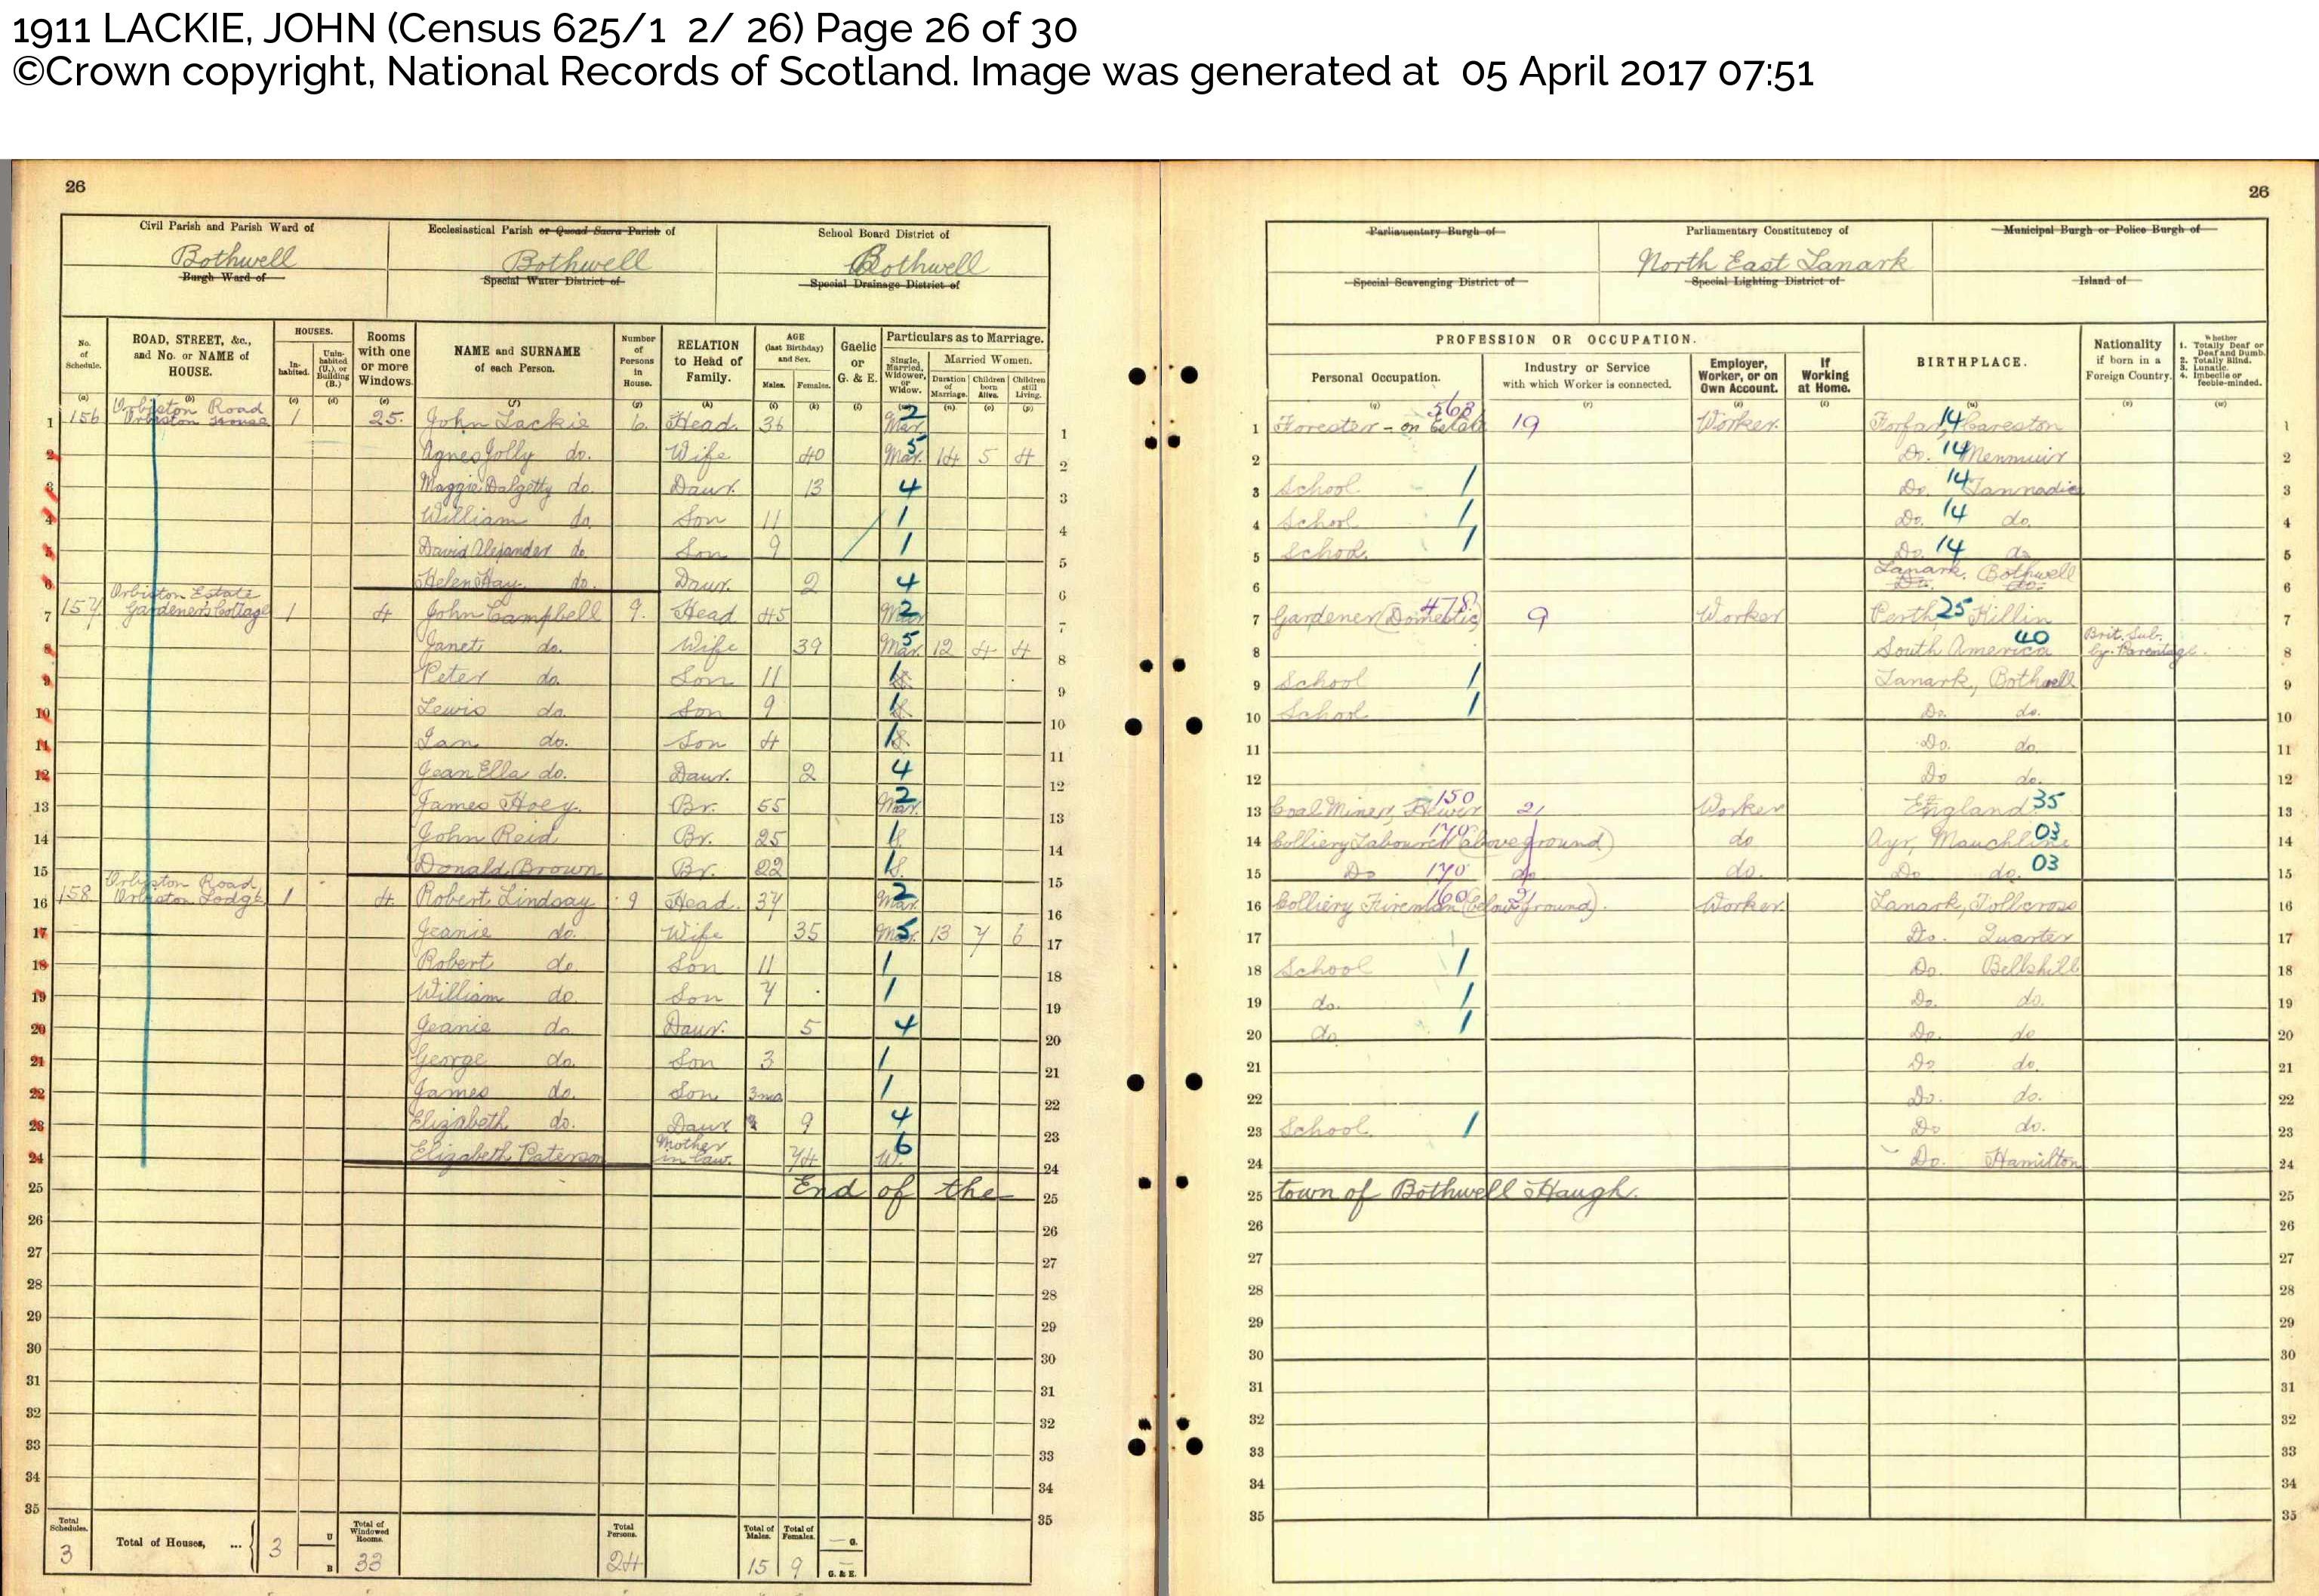 1911 LACKIE, JOHN (Census 625/1 2/ 26) Page 26 of 30
©Crown copyright, National Records of Scotland. Image was generated at 05 April 2017 07:51
26
Civil Parish and Parish Ward of Ecclesiastical Parish or Quoad Sacra Parish of School Board District of
Bothwell Bothwell Bothwell
Burgh Ward of Special Water District of Special Drainage District of
No. of Schedule. ROAD, STREET, &c., and No. or NAME of HOUSE. HOUSES. Inhabited. Uninhabited (U.), or Building (B.) Rooms with one or more Windows. NAME and SURNAME of each Person. Number of Persons in House. RELATION to Head of Family. AGE (last Birthday) and Sex. Males. Females. Gaelic or G. & E. Particulars as to Marriage. Single, Married, Widower, or Widow. Married Women. Duration of Marriage. Children born Alive. Children still Living.
1 156 Orbiston Road Orbiston House 1 25. John Lackie 6. Head. 36 Mar. 2 1
2 Agnes Jolly do. Wife 40 Mar. 5 14 5 4 2
3 Maggie Dalgetty do. Daur. 13 4 3
4 William do. Son 11 1 4
5 David Alexander do Son 9 1 5
6 Helen Hay do. Daur. 2 4 6
7 157 Orbiston Estate Gardener's Cottage 1 4 John Campbell 9. Head 45 Mar 2 7
8 Janet do. Wife 39 Mar. 5 12 4 4 8
9 Peter do. Son 11 1 9
10 Lewis do. Son 9 1 10
11 Ian do. Son 4 1 11
12 Jean Ella do. Daur. 2 4 12
13 James Hoey. Br. 55 Mar. 2 13
14 John Reid Br. 25 1 14
15 Donald Brown Br. 22 1 S. 15
16 158 Orbiston Road Orbiston Lodge 1 4 Robert Lindsay 9 Head. 37 Mar. 2 16
17 Jeanie do. Wife 35 Mar. 5 13 7 6 17
18 Robert do. Son 11 1 18
19 William do. Son 7 1 19
20 Jeanie do Daur. 5 4 20
21 George do. Son 3 1 21
22 James do. Son 3mo 1 22
23 Elizabeth do. Daur 9 4 23
24 Elizabeth Paterson Mother in law. 74 W. 6 24
25 End of the 25
26 26
27 27
28 28
29 29
30 30
31 31
32 32
33 33
34 34
35 35
Total Schedules. 3 Total of Houses, ... 3 U B Total of Windowed Rooms. 33 Total Persons. 24 Total of Males. 15 Total of Females. 9 G. G. & E.
26
Parliamentary Burgh of Parliamentary Constitutency of Municipal Burgh or Police Burgh of
North East Lanark
Special Scavenging District of Special Lighting District of Island of
PROFESSION OR OCCUPATION. Personal Occupation. Industry or Service with which Worker is connected. Employer, Worker, or on Own Account. If Working at Home. BIRTHPLACE. Nationality if born in a Foreign Country. Whether 1. Totally Deaf or Deaf and Dumb. 2. Totally Blind. 3. Lunatic. 4. Imbecile or feeble-minded.
1 Forester - on Estate 563 19 Worker. Forfar, 14 Careston 1
2 Do. 14 Menmuir 2
3 School. 1 Do. 14 Tannadice 3
4 School. 1 Do. 14 do. 4
5 School. 1 Do. 14 do 5
6 Lanark. Bothwell Do. do. 6
7 Gardener (Domestic) 478. 9 Worker Perth, 25 Killin 7
8 South America 40 Brit. Sub. by Parentage. 8
9 School 1 Lanark, Bothwell 9
10 School 1 Do. do. 10
11 Do. do. 11
12 Do do. 12
13 Coal Miner, Hewer 150 21 Worker England 35 13
14 Colliery Labourer (aboveground) 170 do Ayr, Mauchline 03 14
15 Do 170 do do. Do do. 03 15
16 Colliery Fireman (below ground). 160 21 Worker. Lanark, Tollcross 16
17 Do. Quarter 17
18 School 1 Do. Bellshill 18
19 do. 1 Do. do. 19
20 do. 1 Do. do 20
21 Do do. 21
22 Do. do. 22
23 School. 1 Do do. 23
24 Do. Hamilton 24
25 town of Bothwell Haugh. 25
26 26
27 27
28 28
29 29
30 30
31 31
32 32
33 33
34 34
35 35